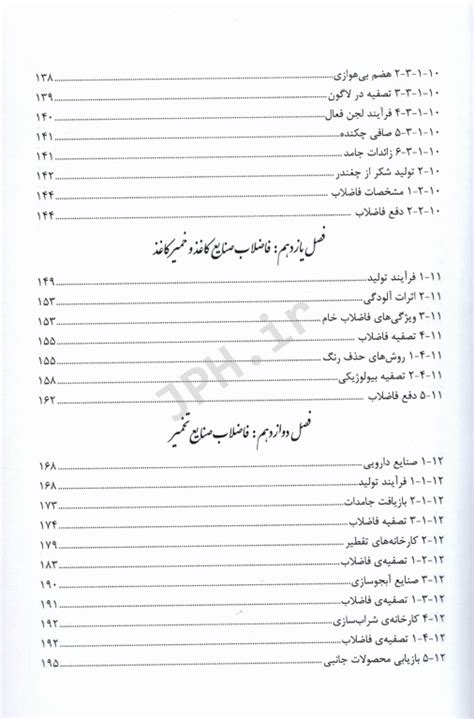 ۱۰-۱-۳-۲ هضم بی‌هوازی ........ ۱۳۸
۱۰-۱-۳-۳ تصفیه در لاگون ........ ۱۳۹
۱۰-۱-۳-۴ فرآیند لجن فعال ........ ۱۴۰
۱۰-۱-۳-۵ صافی چکنده ........ ۱۴۱
۱۰-۱-۳-۶ زائدات جامد ........ ۱۴۱
۱۰-۲ تولید شکر از چغندر ........ ۱۴۲
۱۰-۲-۱ مشخصات فاضلاب ........ ۱۴۴
۱۰-۲-۲ دفع فاضلاب ........ ۱۴۴
فصل یازدهم: فاضلاب صنایع کاغذ و خمیر کاغذ
۱۱-۱ فرآیند تولید ........ ۱۴۹
۱۱-۲ اثرات آلودگی ........ ۱۵۳
۱۱-۳ ویژگی‌های فاضلاب خام ........ ۱۵۳
۱۱-۴ تصفیه فاضلاب ........ ۱۵۵
۱۱-۴-۱ روش‌های حذف رنگ ........ ۱۵۵
۱۱-۴-۲ تصفیه بیولوژیکی ........ ۱۵۸
۱۱-۵ دفع فاضلاب ........ ۱۶۲
JPH.ir
فصل دوازدهم: فاضلاب صنایع تخمیر
۱۲-۱ صنایع دارویی ........ ۱۶۸
۱۲-۱-۱ فرآیند تولید ........ ۱۶۸
۱۲-۱-۲ بازیافت جامدات ........ ۱۷۳
۱۲-۱-۳ تصفیه فاضلاب ........ ۱۷۴
۱۲-۲ کارخانه‌های تقطیر ........ ۱۷۹
۱۲-۲-۱ تصفیه‌ی فاضلاب ........ ۱۸۳
۱۲-۳ صنایع آبجوسازی ........ ۱۹۰
۱۲-۳-۱ تصفیه‌ی فاضلاب ........ ۱۹۱
۱۲-۴ کارخانه‌ی شراب‌سازی ........ ۱۹۲
۱۲-۴-۱ تصفیه‌ی فاضلاب ........ ۱۹۲
۱۲-۵ بازیابی محصولات جانبی ........ ۱۹۵